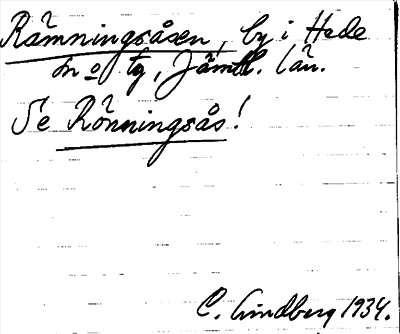 Rämningsåsen, by i Hede
sn o tg, Jämtl. län.
Se Rönningsås!
C. Lindberg 1934.